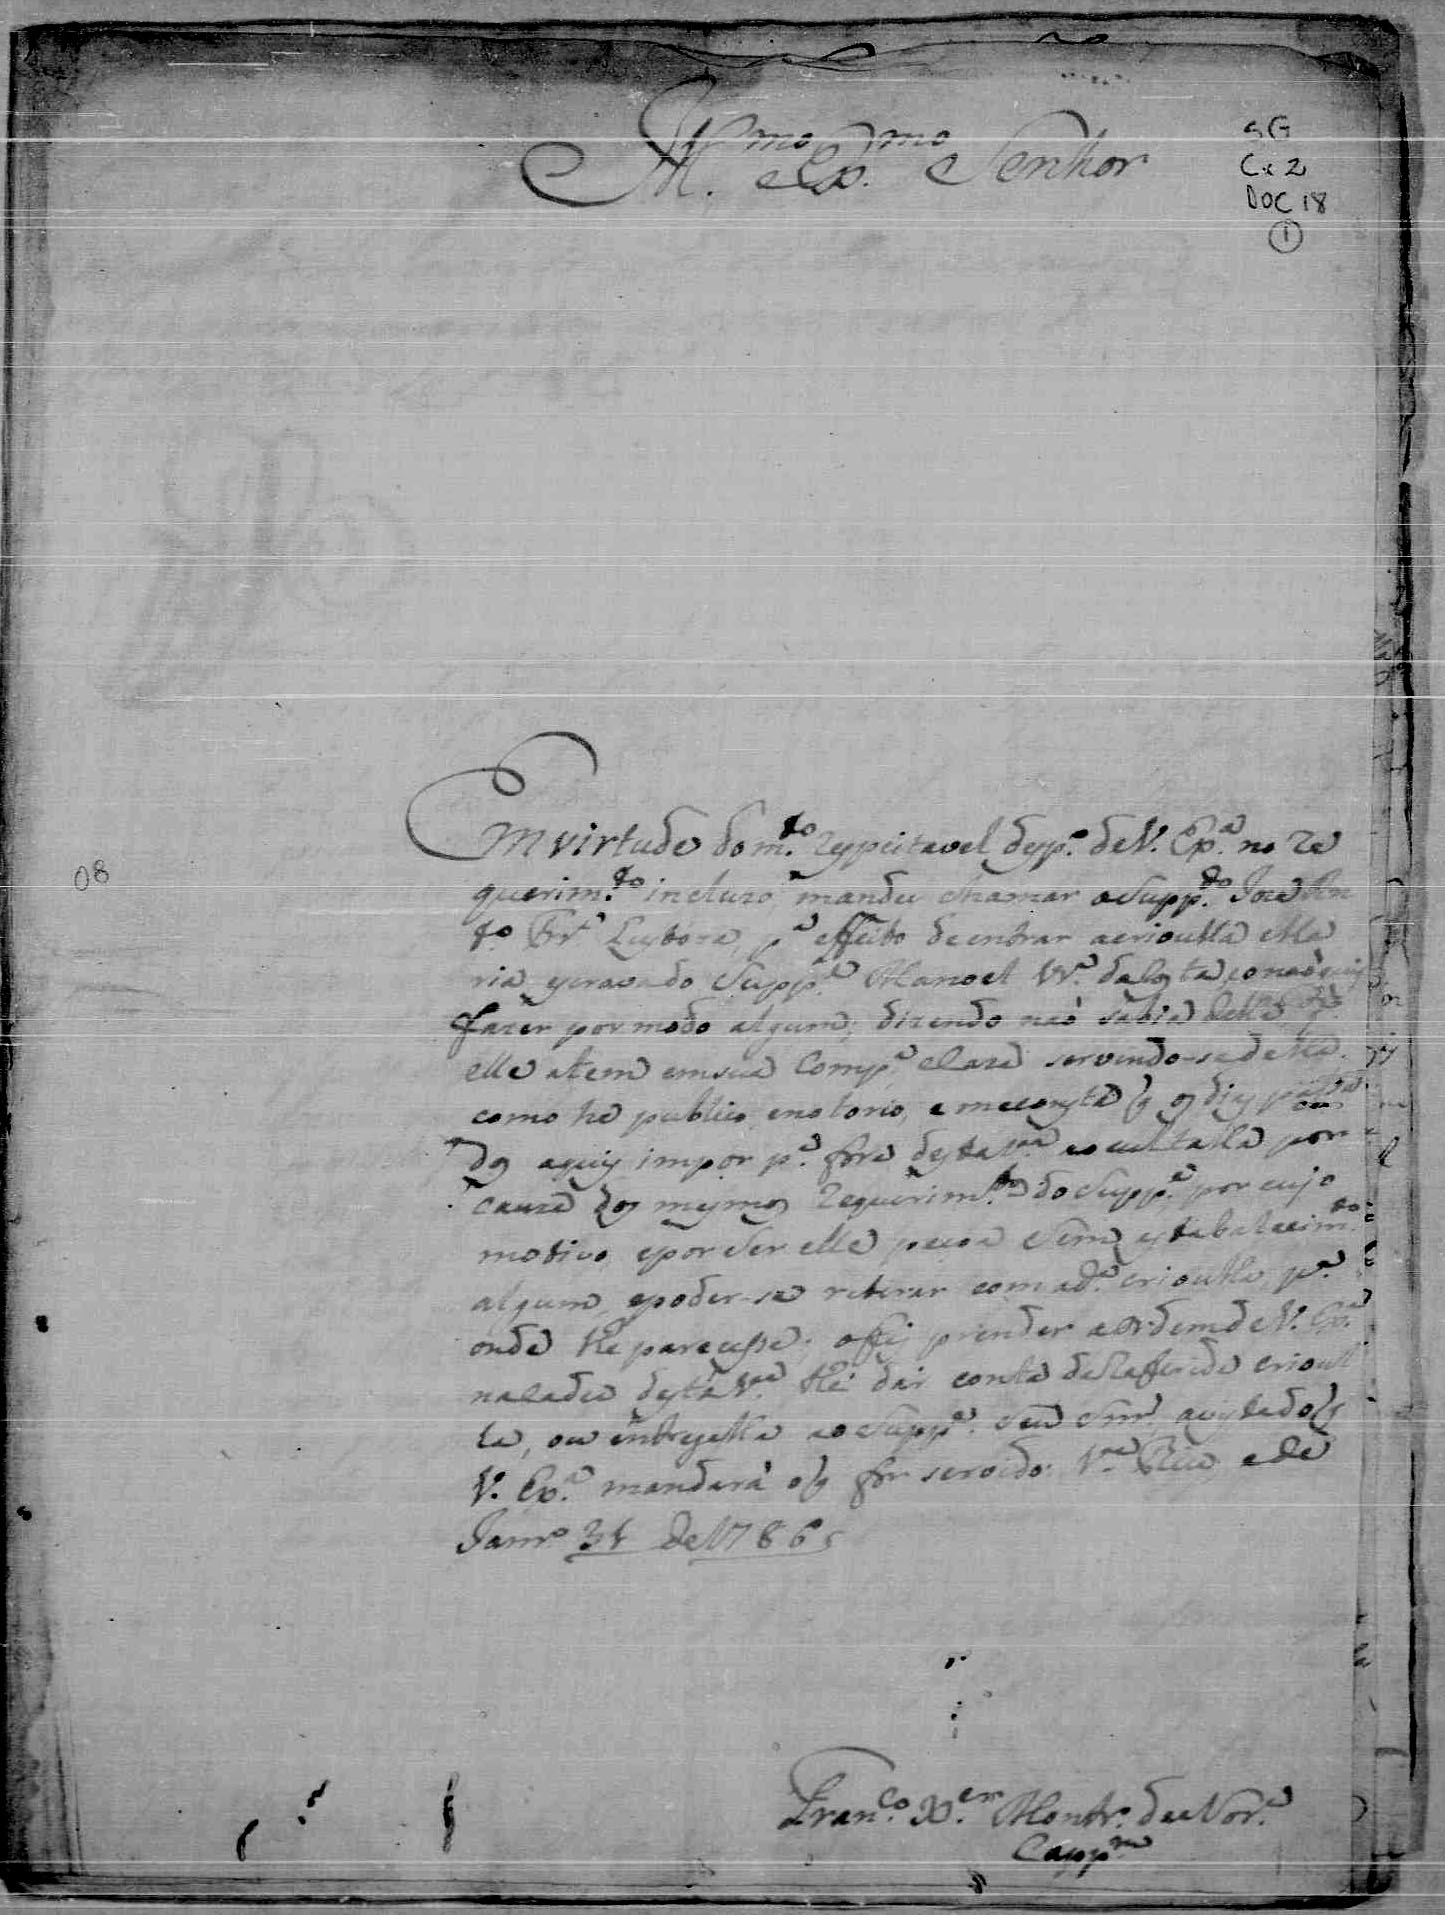 Ill.mo Ex.mo Senhor
SG
Cx 2
DOC 18
1
Em virtude do m.to respeitavel desp.o de V. Ex.a no Re
querim.to incluzo, mandei chamar o Supp.do Joze An
to Frr.a Lisboa, p.a effeito de entrar a crioulla Ma
ria escrava do Supp.e Manoel Vr.a da Costa, o não quis
fazer por modo algum; dizendo não sabia della
elle atem em sua Comp.a e Caza servindo-se della
como he publico, enotorio, e me consta q os dias
dos aquis impor p.a fora desta V.a e ocultalla por
cauza dos mesmos Requerim.tos do Supp.e, por cujo
motivo, e por ser elle peçoa sem estabalecim.to
algum, e poder-se retirar com a d.a crioulla p.a
onde lhe parecesse; o fis prender a ordem de V. Ex.a
na Cadea desta V.a the dar conta da Referida crioul
la, ou entregalla ao Supp.e seu Snr, a vista do q
V. Ex.a mandará o q for servido. V.a Rica e de
Janr.o 31 de 1786
08
Fran.co X.er Montr.o de Nor.a
Capp.m